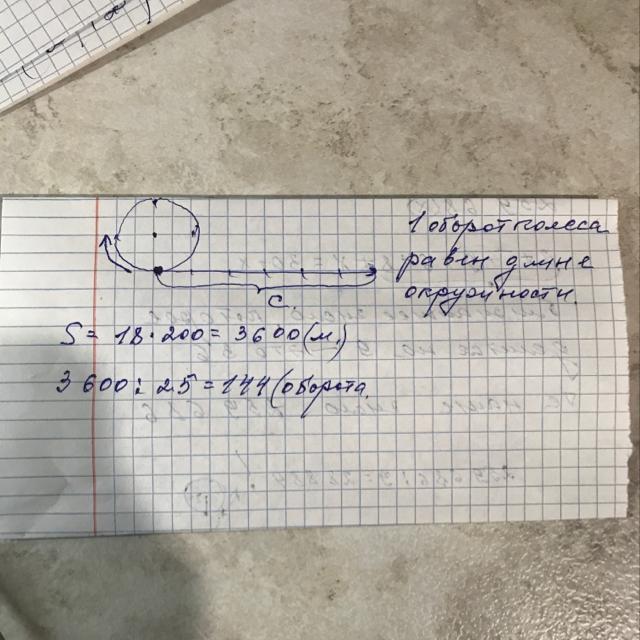 1 оборот колеса
равен длине
окружности.
C
S = 18 · 200 = 3600 (м.)
3 600 : 25 = 144 (оборота.